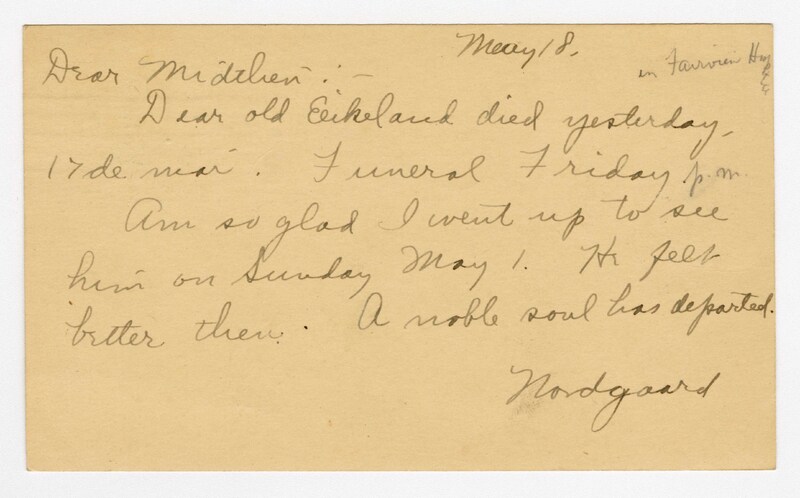 May 18.
in Fairview Hosp
Dear Midthen :-
Dear old Eikeland died yesterday,
17de mai. Funeral Friday p.m.
Am so glad I went up to see
him on Sunday May 1. He felt
better then. A noble soul has departed.
Nordgaard